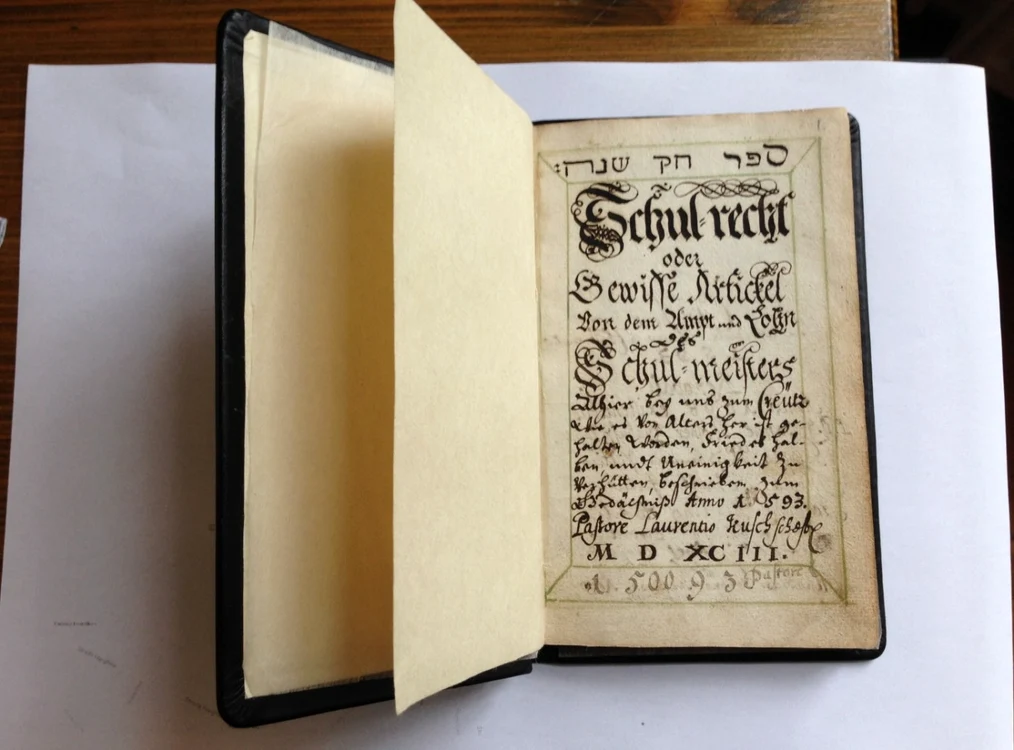 ספר חק שנה:
Schul-recht
oder
Gewisse Artickel
Von dem Ampt und Lohn
des
Schul-meisters
Alhier bey uns zum Creütz
Wie es Von Alters her ist ge-
halten Worden, Friedes hal-
ben, undt Uneinigkeit zu
Verhütten, beschrieben zum
Gedächtniß Anno 1593.
Pastore Laurentio
M D XCIII.
1 500 9 3 Pastore